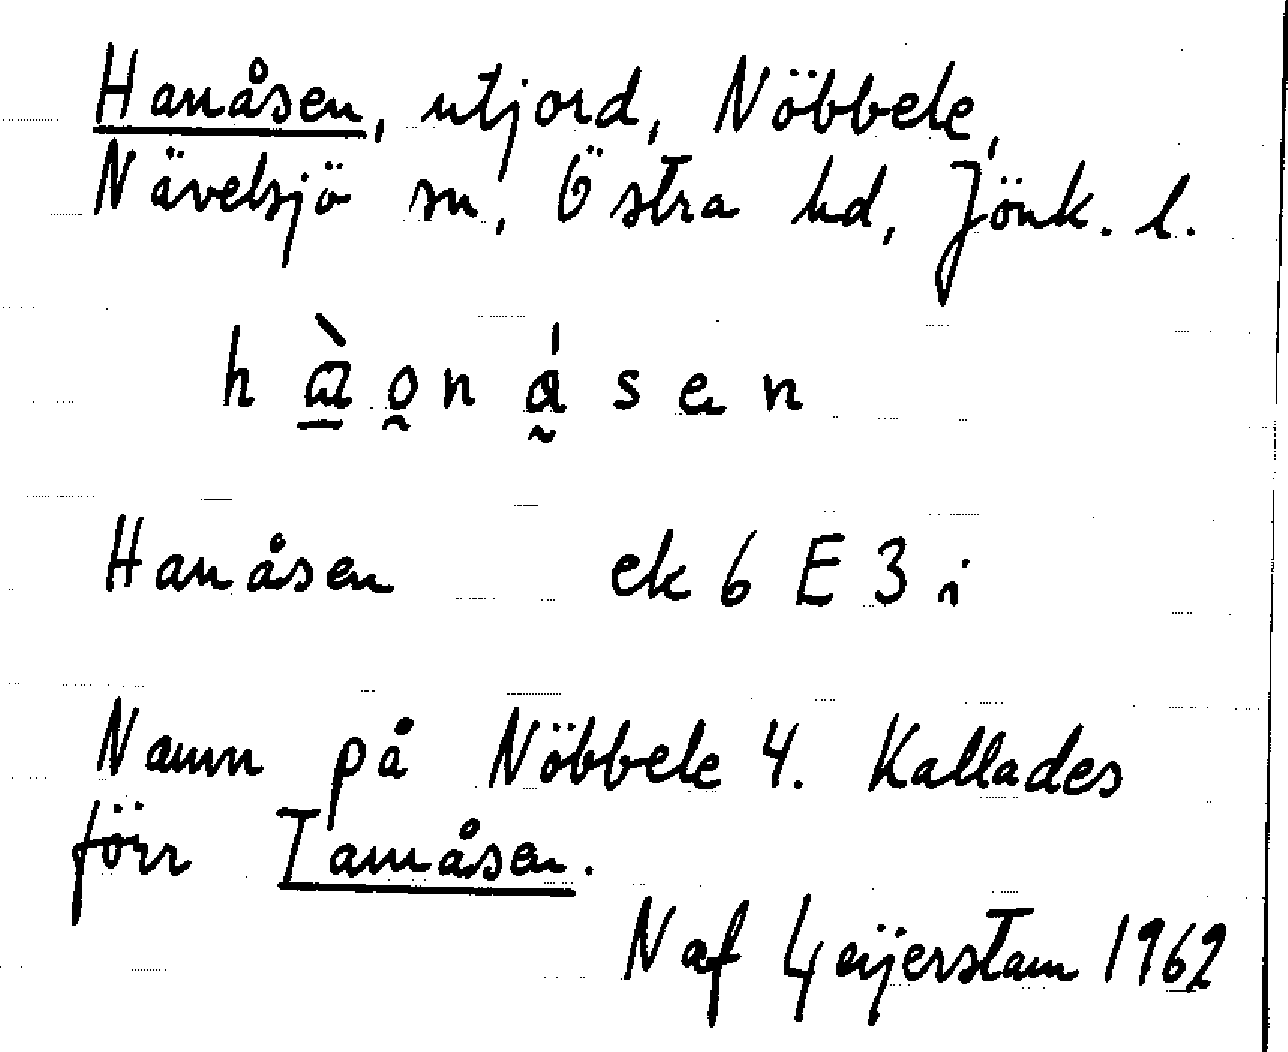 Hanåsen, utjord, Nöbbele,
Nävelsjö sn, Östra hd, Jönk. l.
Hanåsen ek 6 E 3 i
Namn på Nöbbele 4. Kallades
förr Tanåsen.
N af Geijerstam 1962